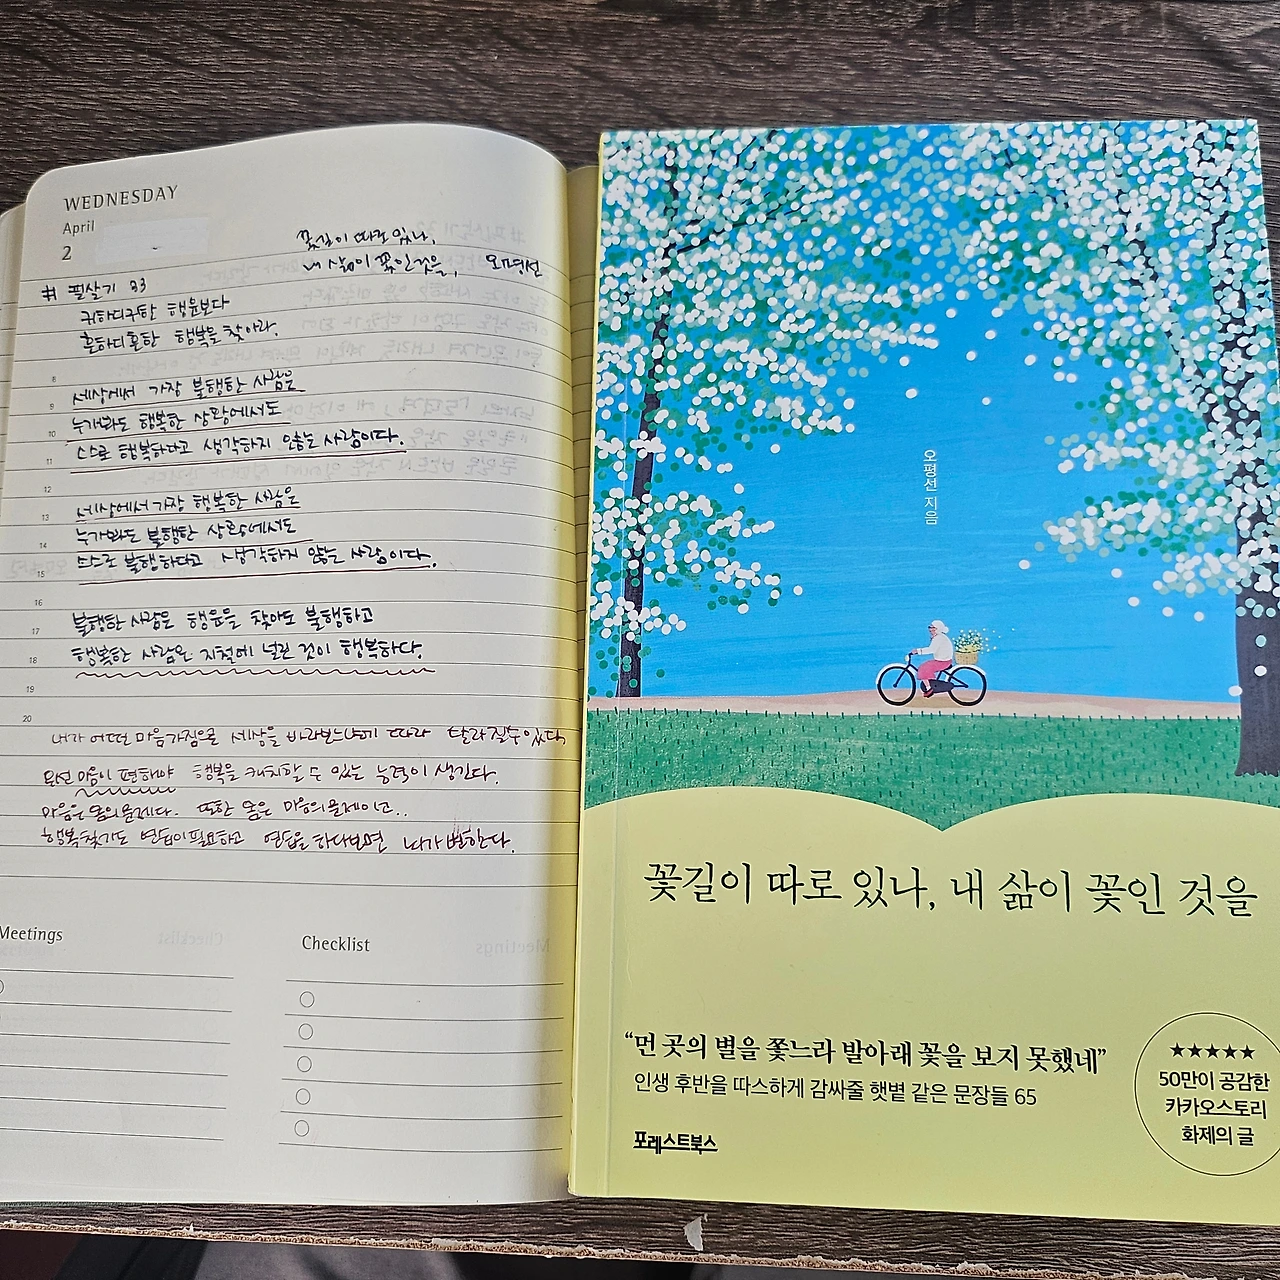 WEDNESDAY
April
2
꽃길이 따로 있나,
내 삶이 꽃인 것을, 오평선
# 필살기 83
귀하디귀한 행운보다
흔하디흔한 행복을 찾아라.
8
세상에서 가장 불행한 사람은
9
누가봐도 행복한 상황에서도
10
스스로 행복하다고 생각하지 않는 사람이다.
11
12
세상에서 가장 행복한 사람은
13
누가봐도 불행한 상황에서도
14
스스로 불행하다고 생각하지 않는 사람이다.
15
16
불행한 사람은 행운을 찾아도 불행하고
17
행복한 사람은 지천에 널린 것이 행복하다.
18
19
20
내가 어떤 마음가짐으로 세상을 바라보느냐에 따라 달라질수있다.
우선 마음이 편해야 행복을 캐치할 수 있는 능력이 생긴다.
마음은 몸의문제다. 또한 몸은 마음의문제이고..
행복찾기도 연습이필요하고 연습을 하다보면 내가변한다.
Meetings
Checklist
오평선 지음
꽃길이 따로 있나, 내 삶이 꽃인 것을
“먼 곳의 별을 쫓느라 발아래 꽃을 보지 못했네”
인생 후반을 따스하게 감싸줄 햇볕 같은 문장들 65
포레스트북스
★★★★★
50만이 공감한
카카오스토리
화제의 글